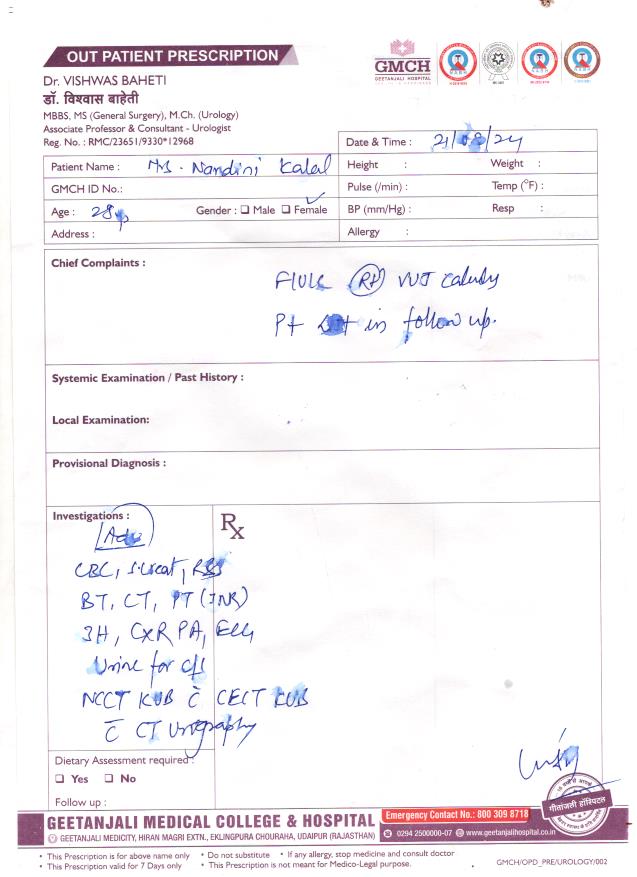 OUT PATIENT PRESCRIPTION
GMCH
GEETANJALI HOSPITAL
Dr. VISHWAS BAHETI
डॉ. विश्वास बाहेती
MBBS, MS (General Surgery), M.Ch. (Urology)
Associate Professor & Consultant - Urologist
Reg. No. : RMC/23651/9330*12968
Date & Time : 21/08/24
Patient Name : Ms. Nandini Kalal
Height : Weight :
GMCH ID No.:
Pulse (/min) : Temp (°F) :
Age : 28y Gender : ☐ Male ☐ Female ✓
BP (mm/Hg) : Resp :
Address :
Allergy :
Chief Complaints :
F/U/C (Rt) VUJ calculus
Pt in follow up.
Systemic Examination / Past History :
Local Examination:
Provisional Diagnosis :
Investigations :
Rx
Adv
CBC, S.Creat, RBS
BT, CT, PT (INR)
3H, CXR PA, ECG
Urine for c/s
NCCT KUB c̄ CECT KUB
c̄ CT Urography
Dietary Assessment required :
☐ Yes ☐ No
Follow up :
गीतांजली हॉस्पिटल
GEETANJALI MEDICAL COLLEGE & HOSPITAL
Emergency Contact No.: 800 309 8718
GEETANJALI MEDICITY, HIRAN MAGRI EXTN., EKLINGPURA CHOURAHA, UDAIPUR (RAJASTHAN)
0294 2500000-07 www.geetanjalihospital.co.in
• This Prescription is for above name only • Do not substitute • If any allergy, stop medicine and consult doctor
• This Prescription valid for 7 Days only • This Prescription is not meant for Medico-Legal purpose.
GMCH/OPD_PRE/UROLOGY/002